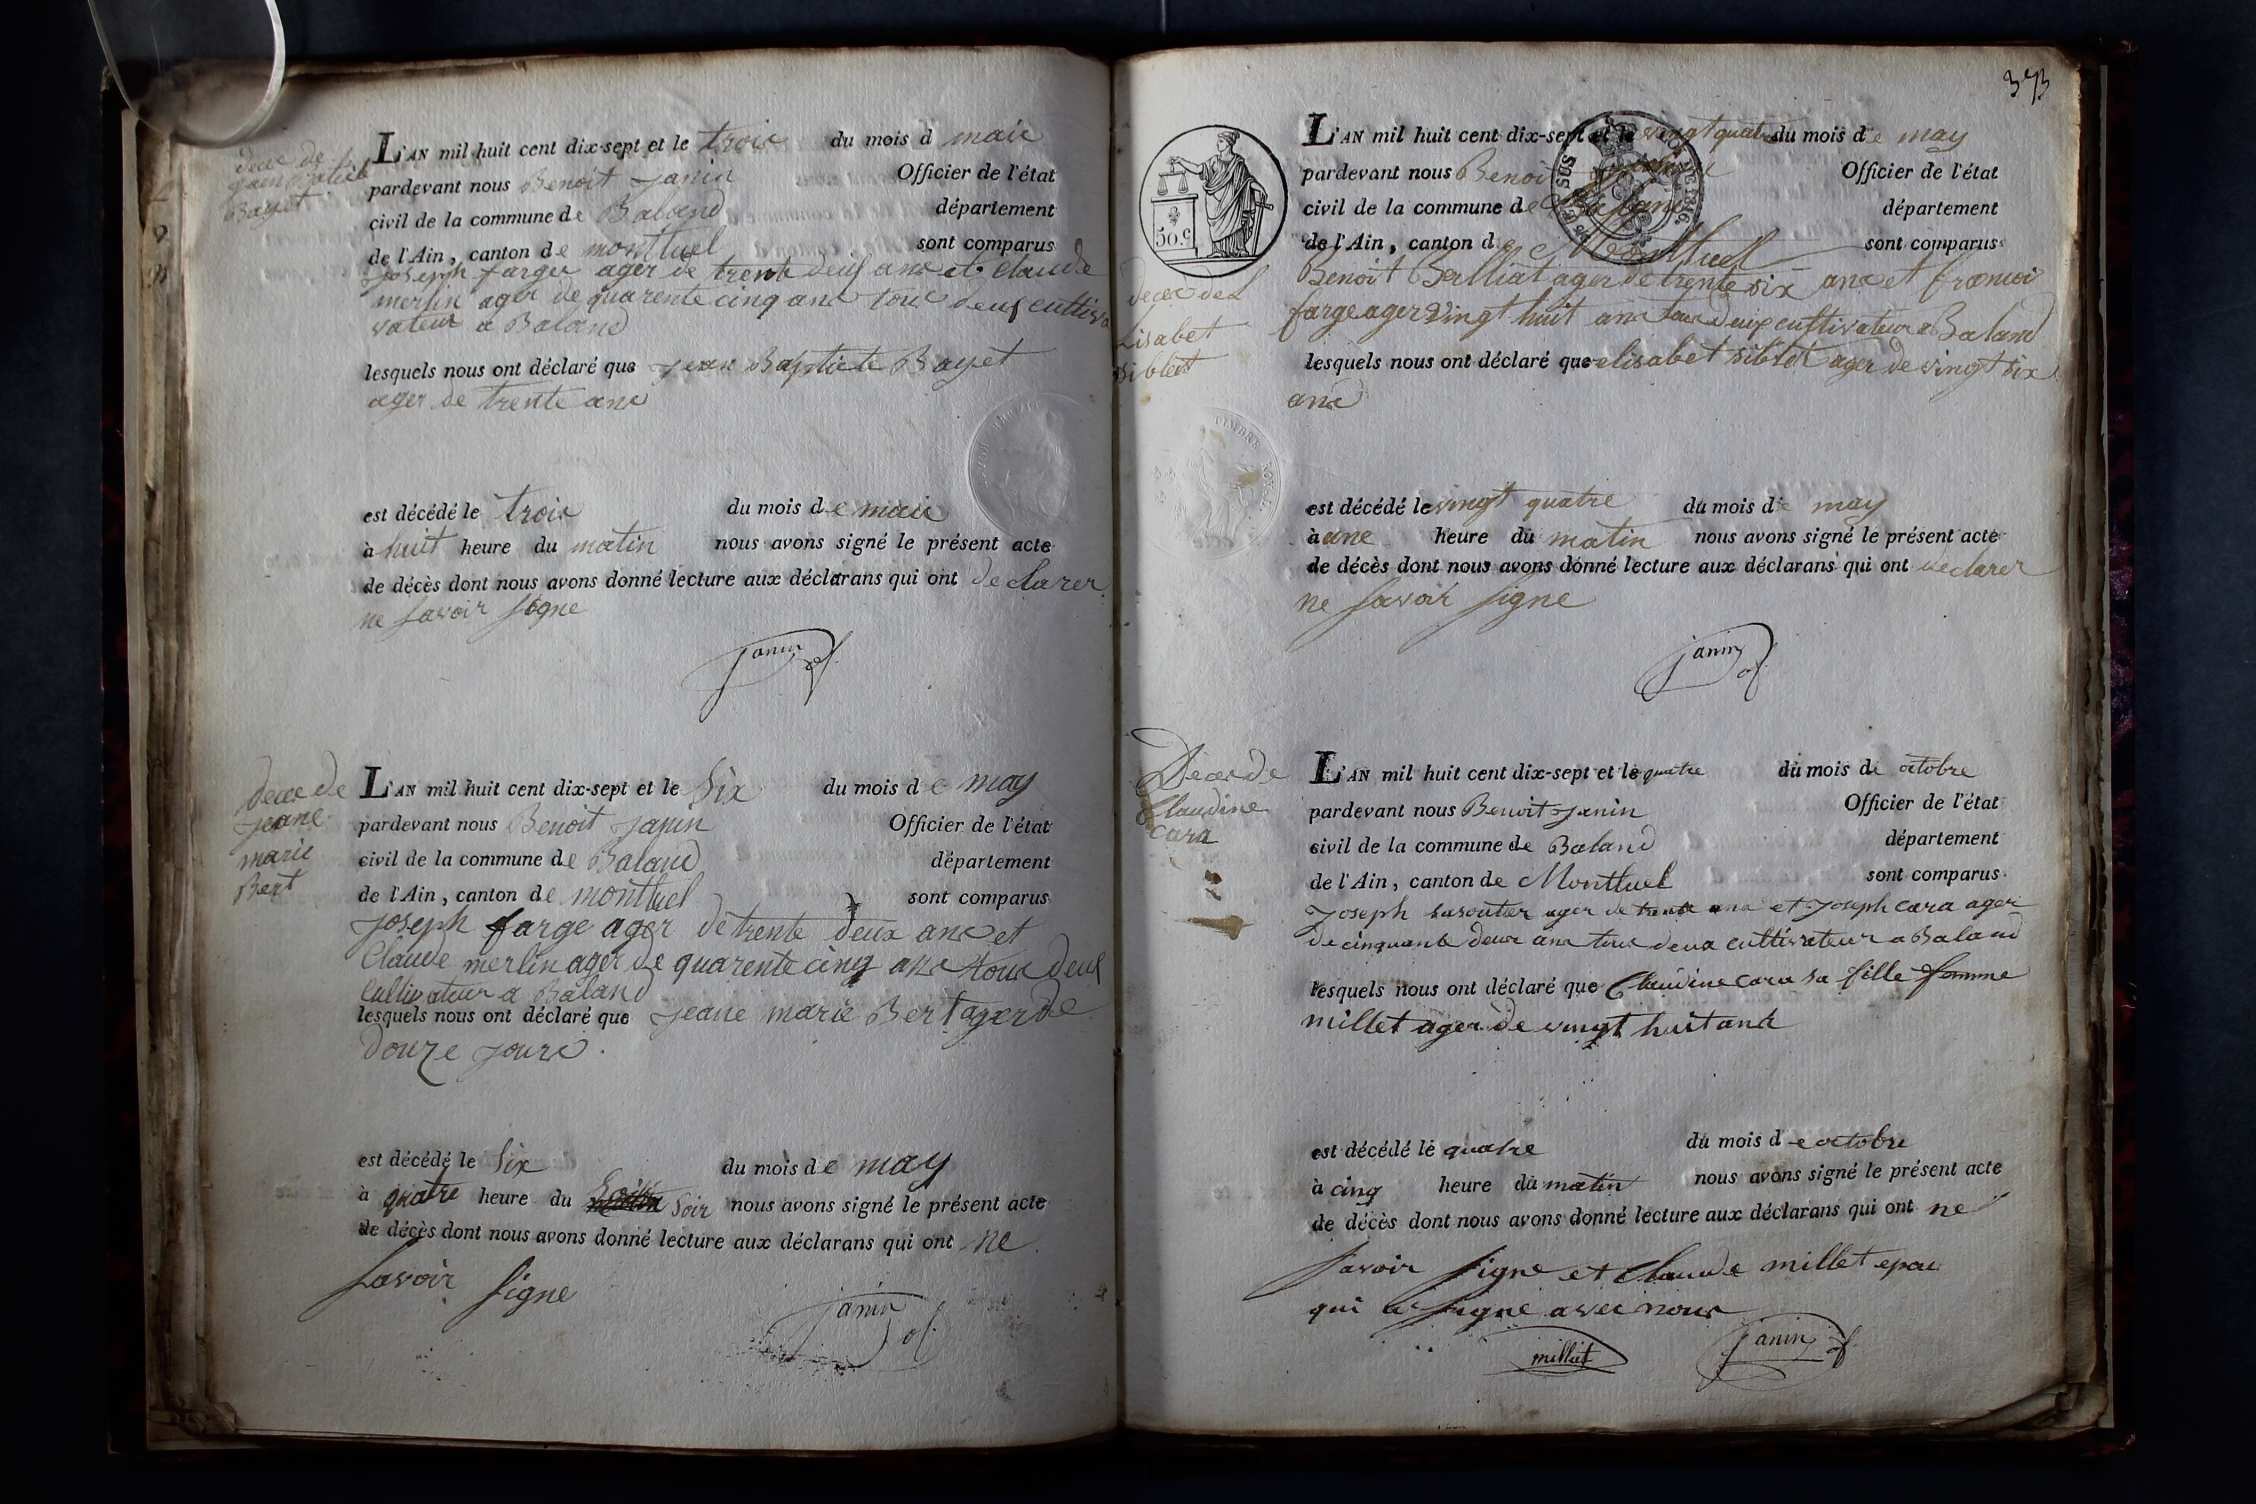 decè de
Jean Batiste
Bayet
L'AN mil huit cent dix-sept et le troic du mois d maic
pardevant nous Benoit Janin Officier de l'état
civil de la commune de Baland département
de l'Ain, canton de montluel sont comparus
Joseph farge ager de trente deuf anc et Claude
merlin ager de quarente cinq anc touc deuf cultiva
vateur a Baland
lesquels nous ont déclaré que jean Baptiste Bayet
ager de trente anc
est décédé le troic du mois de maic
à huit heure du matin nous avons signé le présent acte
de décès dont nous avons donné lecture aux déclarans qui ont declarer
ne savoir signe
janin of.
decè de
jeane
marie
Bert
L'AN mil huit cent dix-sept et le six du mois de may
pardevant nous Benoit Janin Officier de l'état
civil de la commune de Baland département
de l'Ain, canton de montluel sont comparus
joseph farge ager de trente deux anc et
Claude merlin ager de quarente cinq anc touc deuf
Cultivateur a Baland
lesquels nous ont déclaré que jeane marie Bert ager de
douze jourc.
est décédé le six du mois de may
à quatre heure du soir nous avons signé le présent acte
de décès dont nous avons donné lecture aux déclarans qui ont ne
savoir signe
janin of.
373
50.c
TIMBRE ROYAL
decè de
Lisabet
siblet
L'AN mil huit cent dix-sept et le vingt quatre du mois de may
pardevant nous Benoit Officier de l'état
civil de la commune de Baland département
de l'Ain, canton de Montluel sont comparus
Benoit Berlliat ager de trente six anc et francoi
farge ager vingt huit anc touc deux cultivateur a Baland
lesquels nous ont déclaré que elisabet siblet ager de vingt six
anc
est décédé le vingt quatre du mois de may
à une heure du matin nous avons signé le présent acte
de décès dont nous avons donné lecture aux déclarans qui ont declarer
ne savoir signe
janin of.
Decès de
Claudine
cara
L'AN mil huit cent dix-sept et le quatre du mois de octobre
pardevant nous Benoit Janin Officier de l'état
civil de la commune de Baland département
de l'Ain, canton de Montluel sont comparus
Joseph ager de trente anc et Joseph cara ager
de cinquante deux anc touc deux cultivateur a Baland
lesquels nous ont déclaré que Claudine cara sa fille femme
millet ager de vingt huit anc
est décédé le quatre du mois de octobre
à cinq heure du matin nous avons signé le présent acte
de décès dont nous avons donné lecture aux déclarans qui ont ne
savoir signe et Claude millet epou
qui a signe avec nouc
milliet janin of.